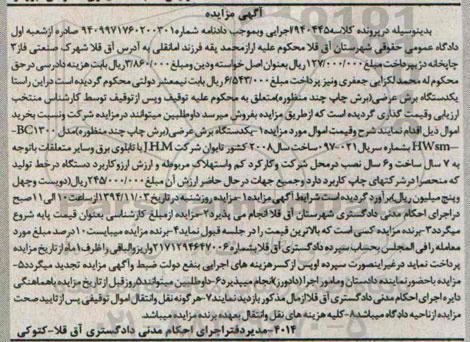 آگهی مزایده
بدینوسیله در پرونده کلاسه ۹۴۰۴۴۵ اجرایی وبموجب دادنامه شماره ۹۴۰۹۹۷۱۷۶۰۲۰۰۳۰۱ صادره از شعبه اول
دادگاه عمومی حقوقی شهرستان آق قلا محکوم علیه آرازمحمد یقه فرزند امانقلی به آدرس آق قلا شهرک صنعتی فاز ۳
چاپخانه دژ بپرداخت مبلغ ۱۲۷/۰۰۰/۰۰۰ ریال بعنوان اصل خواسته ودین ومبلغ ۳/۸۶۰/۰۰۰ ریال بابت هزینه دادرسی در حق
محکوم له محمد لکزایی جعفری ونیز پرداخت مبلغ ۶/۵۴۳/۰۰۰ ریال بابت نیمعشر دولتی محکوم گردیده است در این راستا
یکدستگاه برش عرضی (برش چاپ چند منظوره) متعلق به محکوم علیه توقیف وپس از توقیف توسط کارشناس منتخب
ارزیابی وقیمت گذاری گردیده است که از طریق مزایده بفروش میرسد داوطلبین میتوانند در مزایده شرکت ونسبت بخرید
اموال ذیل اقدام نمایند شرح وقیمت اموال مورد مزایده ۱- یکدستگاه برش عرضی (برش چاپ چند منظوره) مدل BC۱۳۰۰-
HWsm– بشماره سریال ۰۹۷۰۰۲۱ ساخت سال ۲۰۰۸ کشور تایوان شرکت J.H.M با تابلوی برق وسایر متعلقات باتوجه
به ۷ سال ساخت و ۶ سال نصب در محل شرکت وکارکرد کم واستهلاک مربوطه و ارزش ارزو کاربرد دستگاه در خط تولید
که منحصرا در شرکتهای چاپ کاربرد دارد وجمیع جهات در حال حاضر ارزش آن مبلغ ۲۴۵/۰۰۰/۰۰۰ ریال (دویست وچهل
وپنج میلیون ریال) برآورد گردیده است شرایط آگهی مزایده: ۱- مزایده روز شنبه در تاریخ ۱۳۹۴/۱۱/۰۳ از ساعت ۱۰ الی ۱۱ صبح
در اجرای احکام مدنی دادگستری شهرستان آق قلا انجام می پذیرد ۲- مزایده از مبلغ کارشناسی بعنوان قیمت پایه شروع
میگردد ۳- برنده مزایده کسی است که بالاترین قیمت را در جلسه قبول نماید ۴- برنده مزایده میبایست ۱۰ درصد مبلغ مورد
معامله را فی المجلس بحساب سپرده دادگستری آق قلا بشماره ۲۱۷۱۲۹۴۶۴۷۰۰۶ واریز والباقی را ظرف ۱ ماه از تاریخ مزایده
پرداخت نماید در غیر اینصورت سپرده او پس از کسر هزینه های اجرایی بنفع دولت ضبط وآگهی مزایده تجدید میگردد ۵-
مزایده باحضور نماینده دادستان ومامور اجرا (دادورز) انجام میپذیرد ۶- داوطلبین میتوانند ۵ روز قبل از تاریخ مزایده باهماهنگی
دایره اجرای احکام مدنی دادگستری آق قلا از مال مذکور بازدید نمایند ۷- هر گونه نقل وانتقال اموال توقیفی پس از تایید صحت
مزایده از ناحیه دادگاه میباشد ۸- کلیه هزینه های نقل وانتقال بعهده برنده مزایده میباشد.
۴۰۱۴- مدیر دفتر اجرای احکام مدنی دادگستری آق قلا- کتوکی